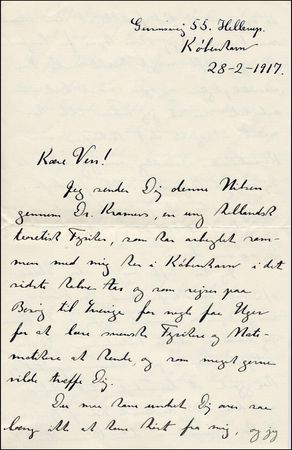 55. Hellerup.
København
28-2-1917.
Kære Ven!
Jeg sender Dig denne Hilsen
gennem Dr. Kramers, en ung hollandsk
teoretisk Fysiker, som har arbejdet sam-
men med mig her i København i det
sidste halve Aar og som rejser paa
Besøg til Sverige for nogle faa Uger
for at lære svenske Fysikere og Mate-
matikere at kende, og som meget gerne
vilde træffe Dig.
Du maa have undret Dig over saa
længe ikke at have hørt fra mig, og jeg